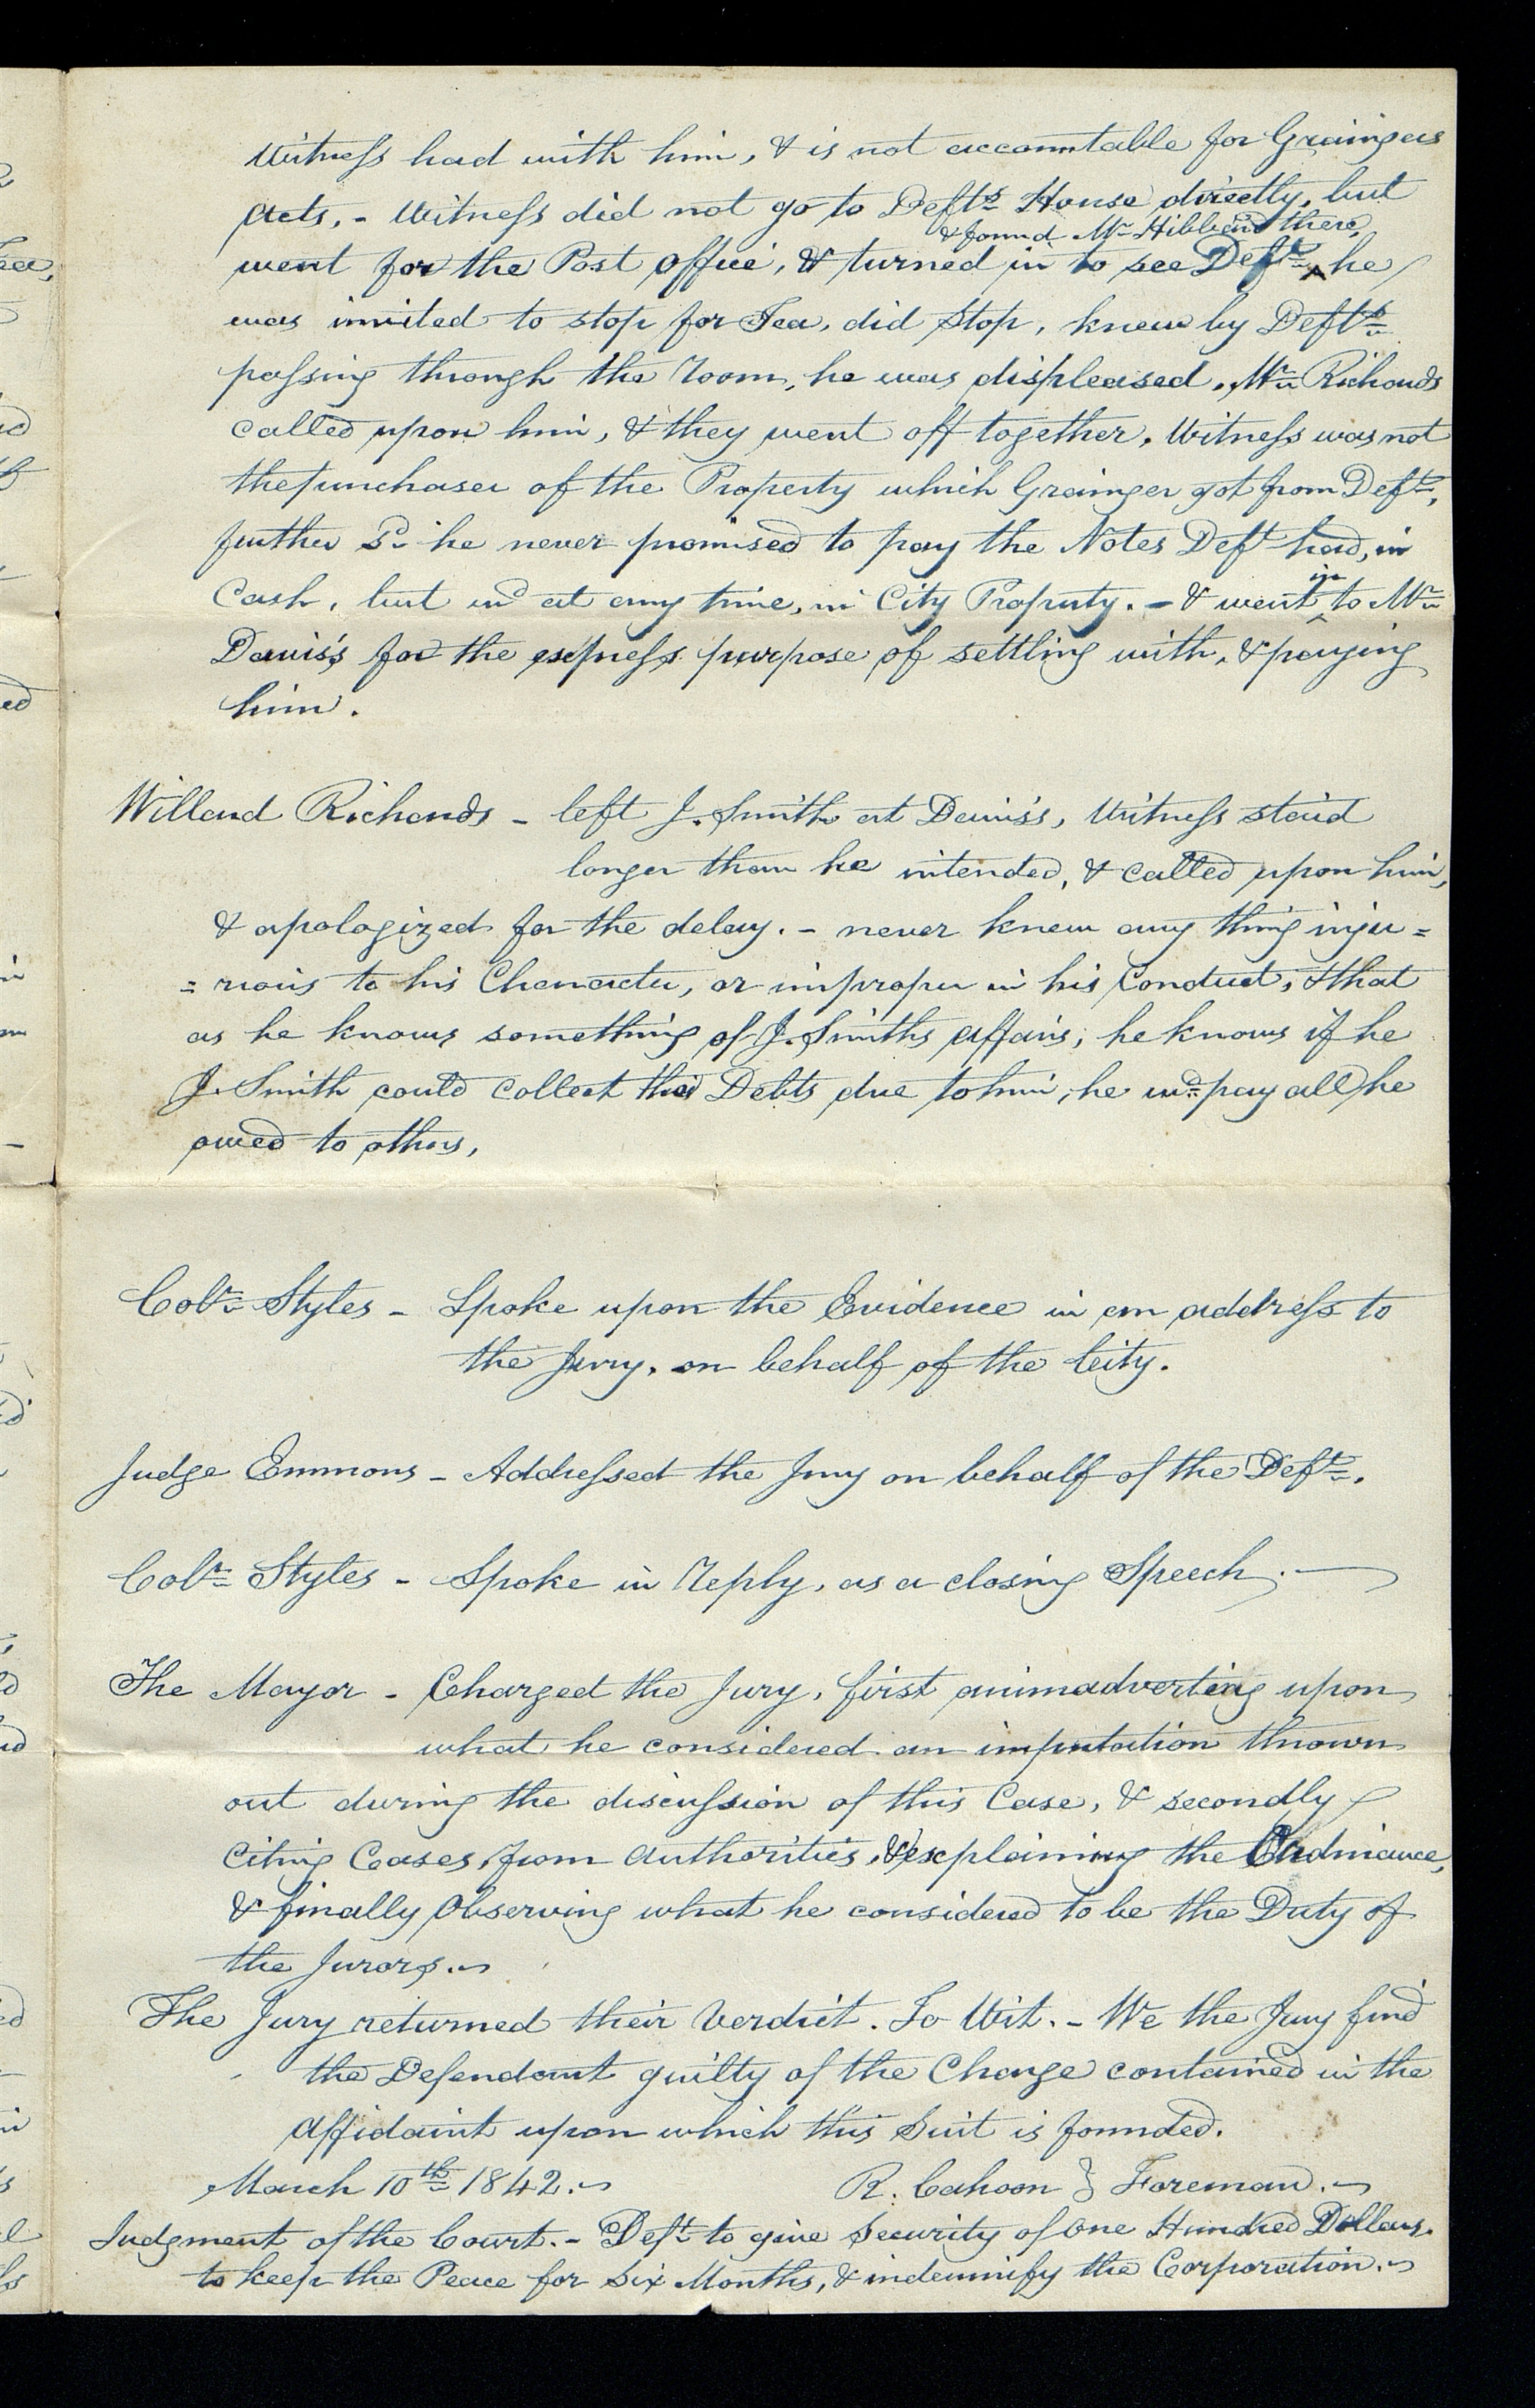 Witness had with him, & is not accountable for Graingers
Acts, - Witness did not go to Defts. House directly, but
& found Mr Hibbard there,
went for the Post office, & turned in to see Deft. ^ he
was invited to stop for Tea, did stop, knew by Defts.
passing through the Room, he was displeased. Mr. Richards
called upon him, & they went off together. Witness was not
the purchaser of the Property which Grainger got from Deft.,
further Sd. he never promised to pay the Notes Deft. had, in
in
Cash, but wd at any time, in City Property. - & went ^ to Mr.
Davis's for the express purpose of settling with, & paying
him.
Willard Richards - left J. Smith at Davis's, Witness staid
longer than he intended, & called upon him,
& apologized for the delay. - never knew any thing inju=
=rious to his Character, or improper in his conduct, & that
as he knows something of J. Smiths affairs, he knows if he
J. Smith could collect the Debts due to him, he wd. pay all he
owed to others,
Coln. Styles - Spoke upon the Evidence in an address to
the Jury, on behalf of the City.
Judge Emmons - Addressed the Jury on behalf of the Deft..
Coln. Styles - Spoke in Reply, as a closing Speech. —
The Mayor - Charged the Jury, first animadverting upon
what he considered an imputation thrown
out during the discussion of this Case, & secondly
citing Cases from authorities, & explaining the Ordinance,
& finally observing what he considered to be the Duty of
the Jurors.
The Jury returned their Verdict. To Wit. - We the Jury find
the Defendant guilty of the Charge contained in the
affidavit upon which this Suit is founded.
March 10th. 1842. R. Cahoon } Foreman.
Judgment of the Court. - Deft. to give Security of One Hundred Dollars.
to keep the Peace for Six Months, & indemnify the Corporation.